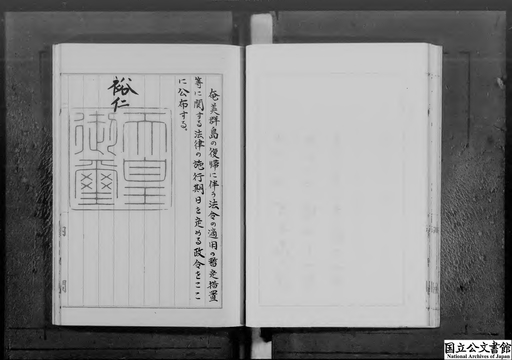 奄美群島の復帰に伴う法令の適用の暫定措置
等に関する法律の施行期日を定める政令をここ
に公布する。
裕仁
天皇
御璽
国立公文書館
National Archives of Japan